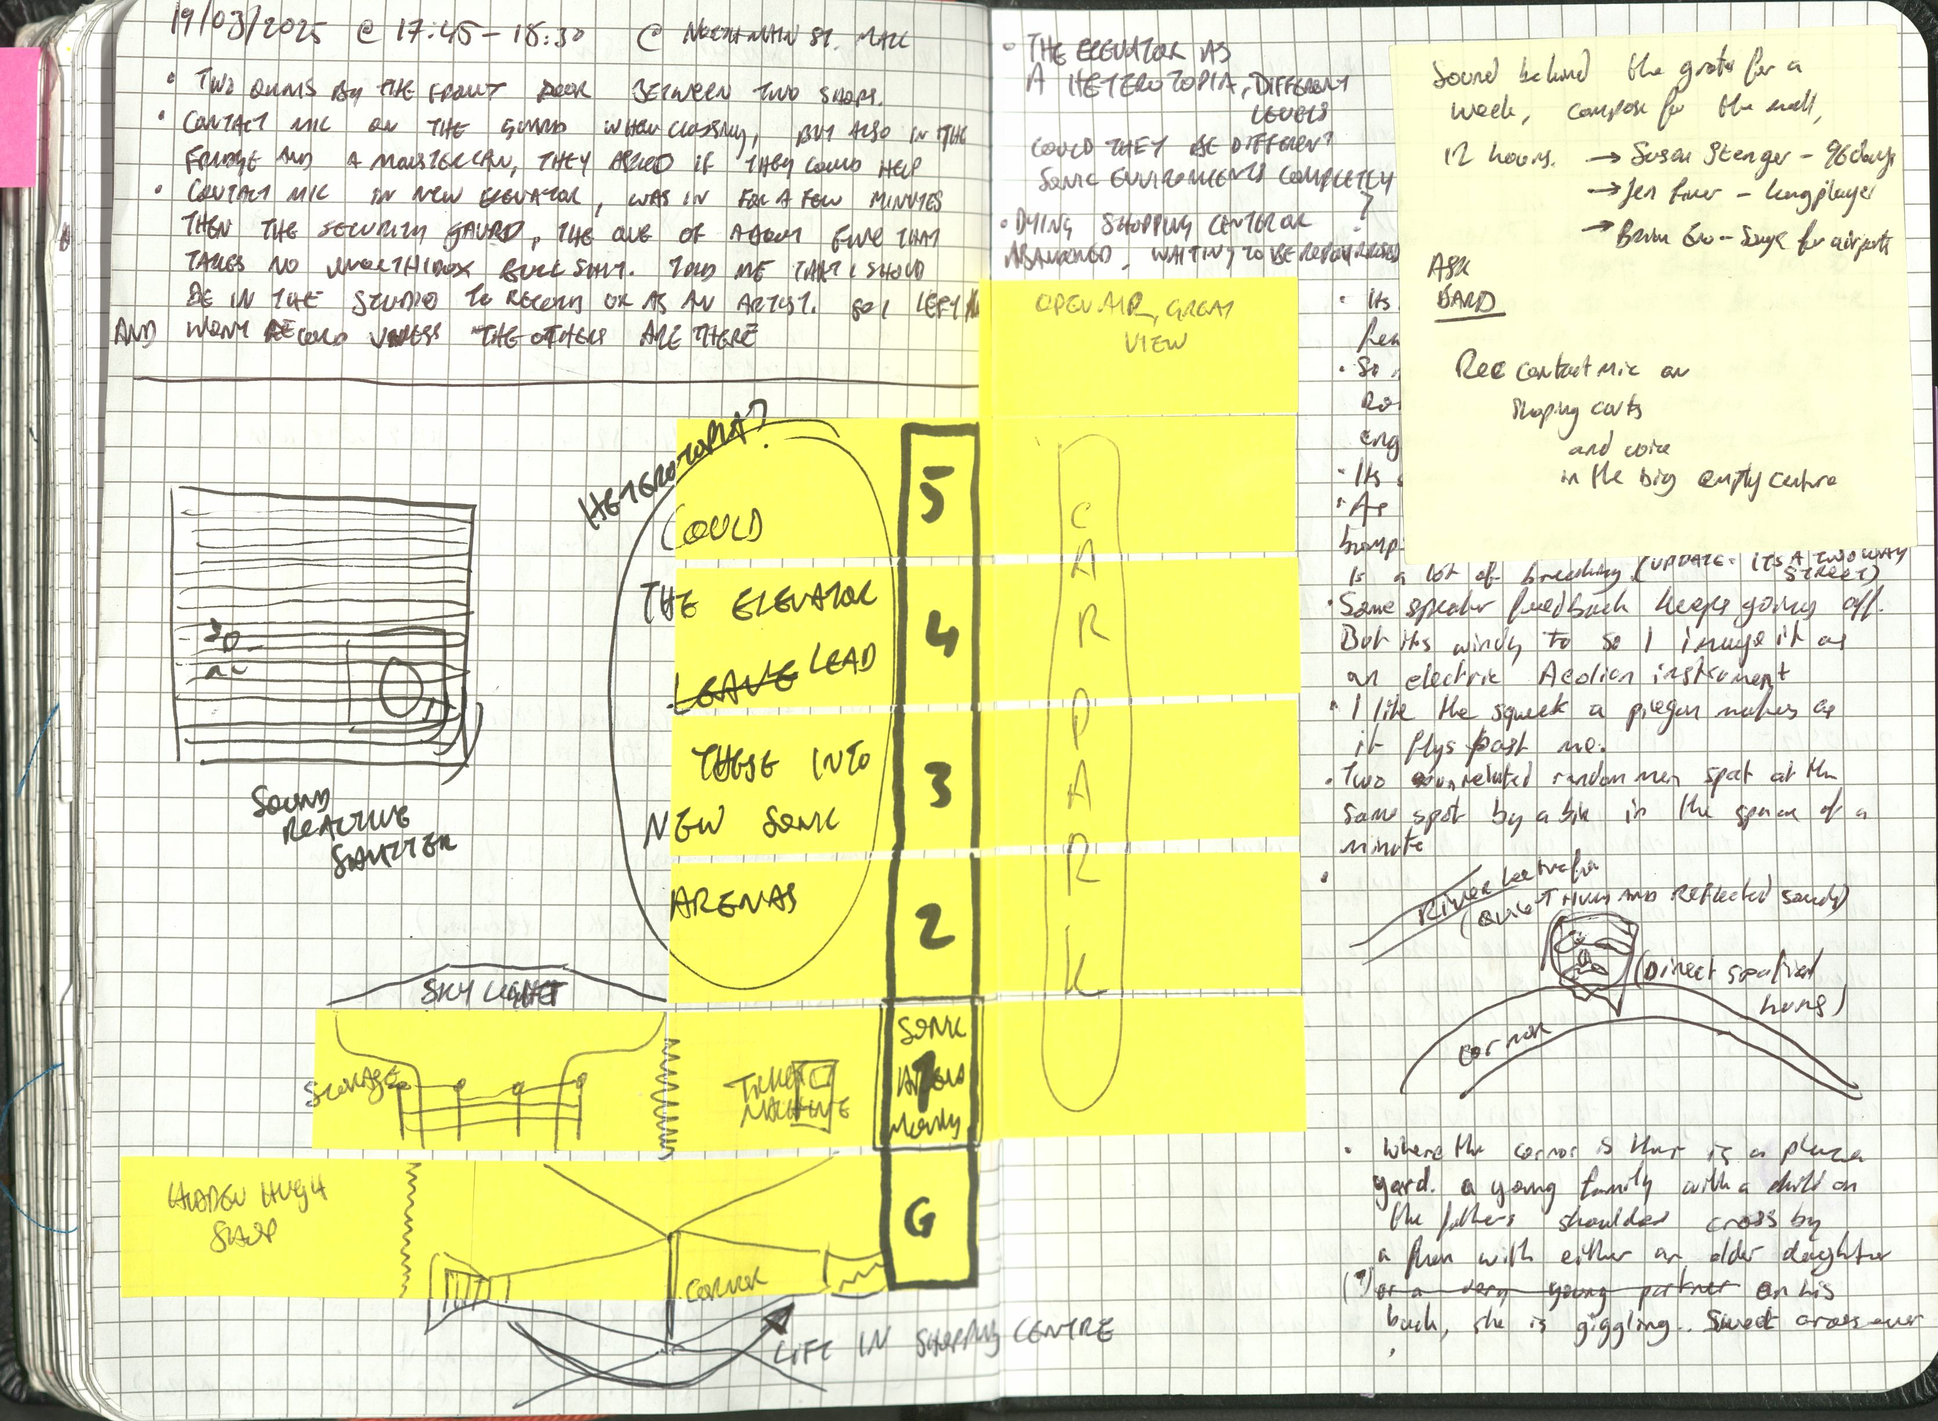 19/03/2025 @ 17:45-18:30 @ NORTH MAIN ST. MALL
• TWO DRUMS BY THE FRONT DOOR BETWEEN TWO SHOPS.
• CONTACT MIC ON THE WHEN CLOSING, BUT ALSO IN THE
FRIDGE AND A MONSTER CAN, THEY ASKED IF THEY COULD HELP
• CONTACT MIC IN NEW ELEVATOR, WAS IN FOR A FEW MINUTES
THEN THE SECURITY GAURD, THE ONE OF ABOUT FIVE THAT
TAKES NO UNORTHIDOX BULLSHIT. TOLD ME THAT I SHOULD
BE IN THE STUDIO TO RECORD OR AS AN ARTIST. SO I LEFT
AND WONT RECORD UNLESS THE OTHERS ARE THERE
HETEROTOPIA?
COULD
THE ELEVATOR
LEAVE LEAD
THESE INTO
NEW SONIC
ARENAS
5
4
3
2
1
G
SOUND
REACTIVE
SKYLIGHT
STORAGE
TICKET
MACHINE
SONIC
HIDDEN HUGH
CORNOR
LIFT IN SHOPPING CENTRE
• THE ELEVATOR AS
A HETEROTOPIA, DIFFERENT
LEVELS
COULD THEY BE DIFFERENT
SONIC ENVIRONMENTS COMPLETELY
?
• DYING SHOPPING CENTER OR
ABANDONED, WAITING TO BE REPURPOSED
OPEN AIR, GREAT
VIEW
CARPARK
Sound behind the grate for a
week, compose for the mall,
12 hours. → Susan Stenger - 96 days
→ Jen Finer - longplayer
→ Brian Eno - Songs for airports
ASK
BARD
Rec contact mic on
shoping carts
and voice
in the big empty centre
• Its
• So
eng
• Its
• As
bump
is a lot of breathing (UPDATE: ITS A TWO WAY
STREET)
• Some speaker feedback keeps going off.
But its windy to so I image it as
an electric Aeolian instrument
• I like the squeek a piegon makes as
it flys past me.
• Two unrelated random men spat at the
same spot by a bin in the space of a
minute
River Lee
(QUIET HUMS AND REFLECTED sounds)
(Direct
hums)
Cornor
• Where the cornor is ther is a
yard. a young family with a child on
the fathers shoulder cross by
a man with either an older daughter
(?) or a very young partner on his
back, she is giggling. Sweet cross over